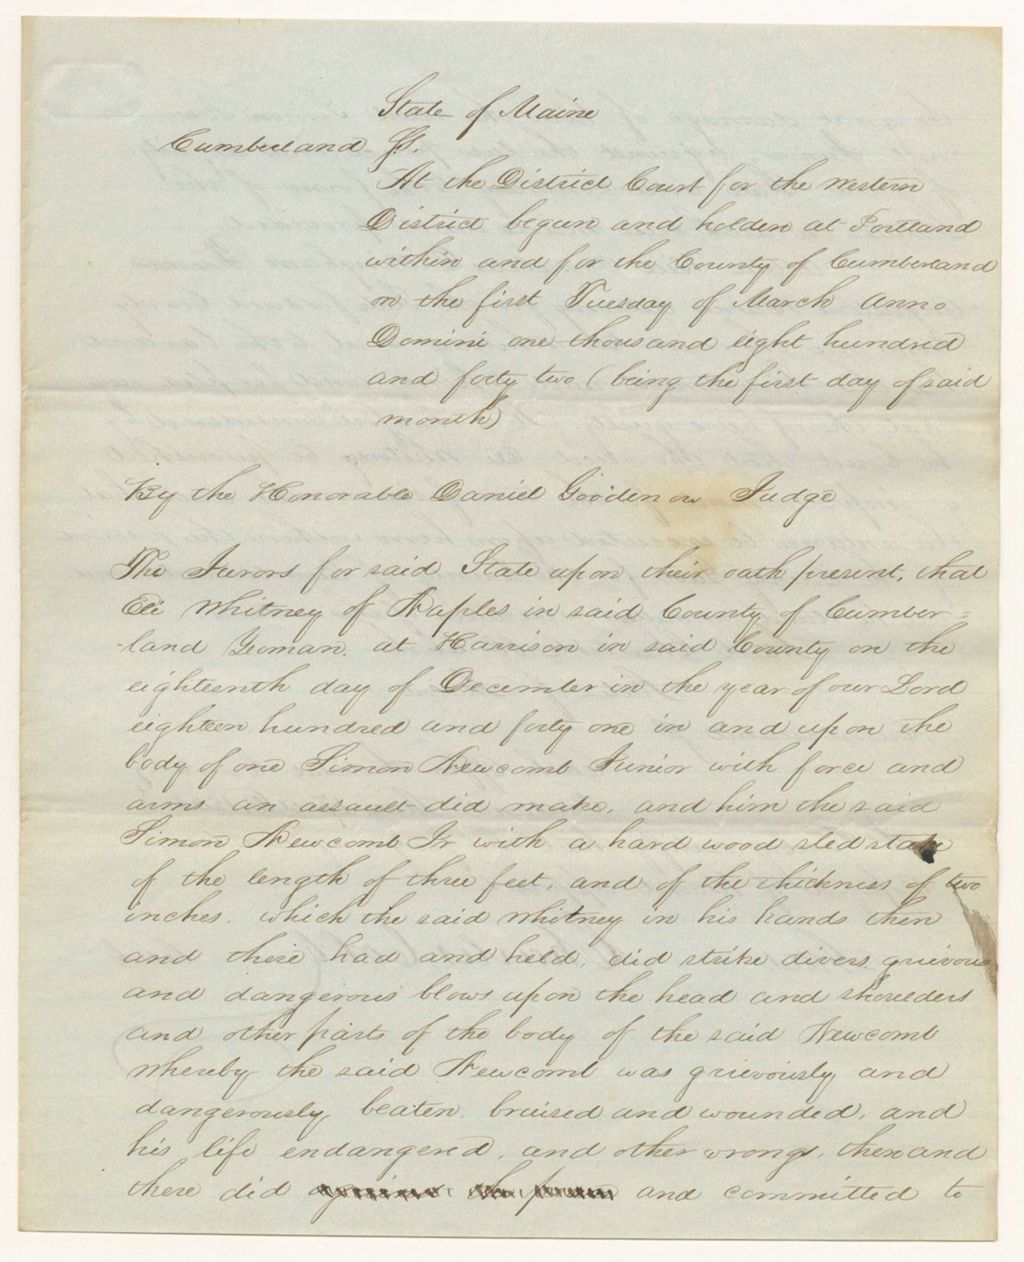 State of Maine
Cumberland Ss.
At the District Court for the Western
District begun and holden at Portland
within and for the County of Cumberland
on the first Tuesday of March Anno
Domini one thousand eight hundred
and forty two (being the first day of said
month)
By the Honorable Daniel Goodenow Judge
The Jurors for said State upon their oath present, that
Eli Whitney of Naples in said County of Cumber=
-land Yeoman, at Harrison in said County on the
eighteenth day of December in the year of our Lord
eighteen hundred and forty one in and upon the
body of one Simon Newcomb Junior with force and
arms an assault did make, and him the said
Simon Newcomb Jr with a hard wood sled stake
of the length of three feet, and of the thickness of two
inches, which the said Whitney in his hands then
and there had and held, did strike divers grievous
and dangerous blows upon the head and shoulders
and other parts of the body of the said Newcomb
whereby the said Newcomb was grievously and
dangerously beaten, bruised and wounded, and
his life endangered, and other wrongs, then and
there did and committed to